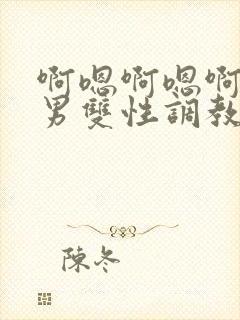 啊嗯啊嗯啊
男雙性調教
陳冬